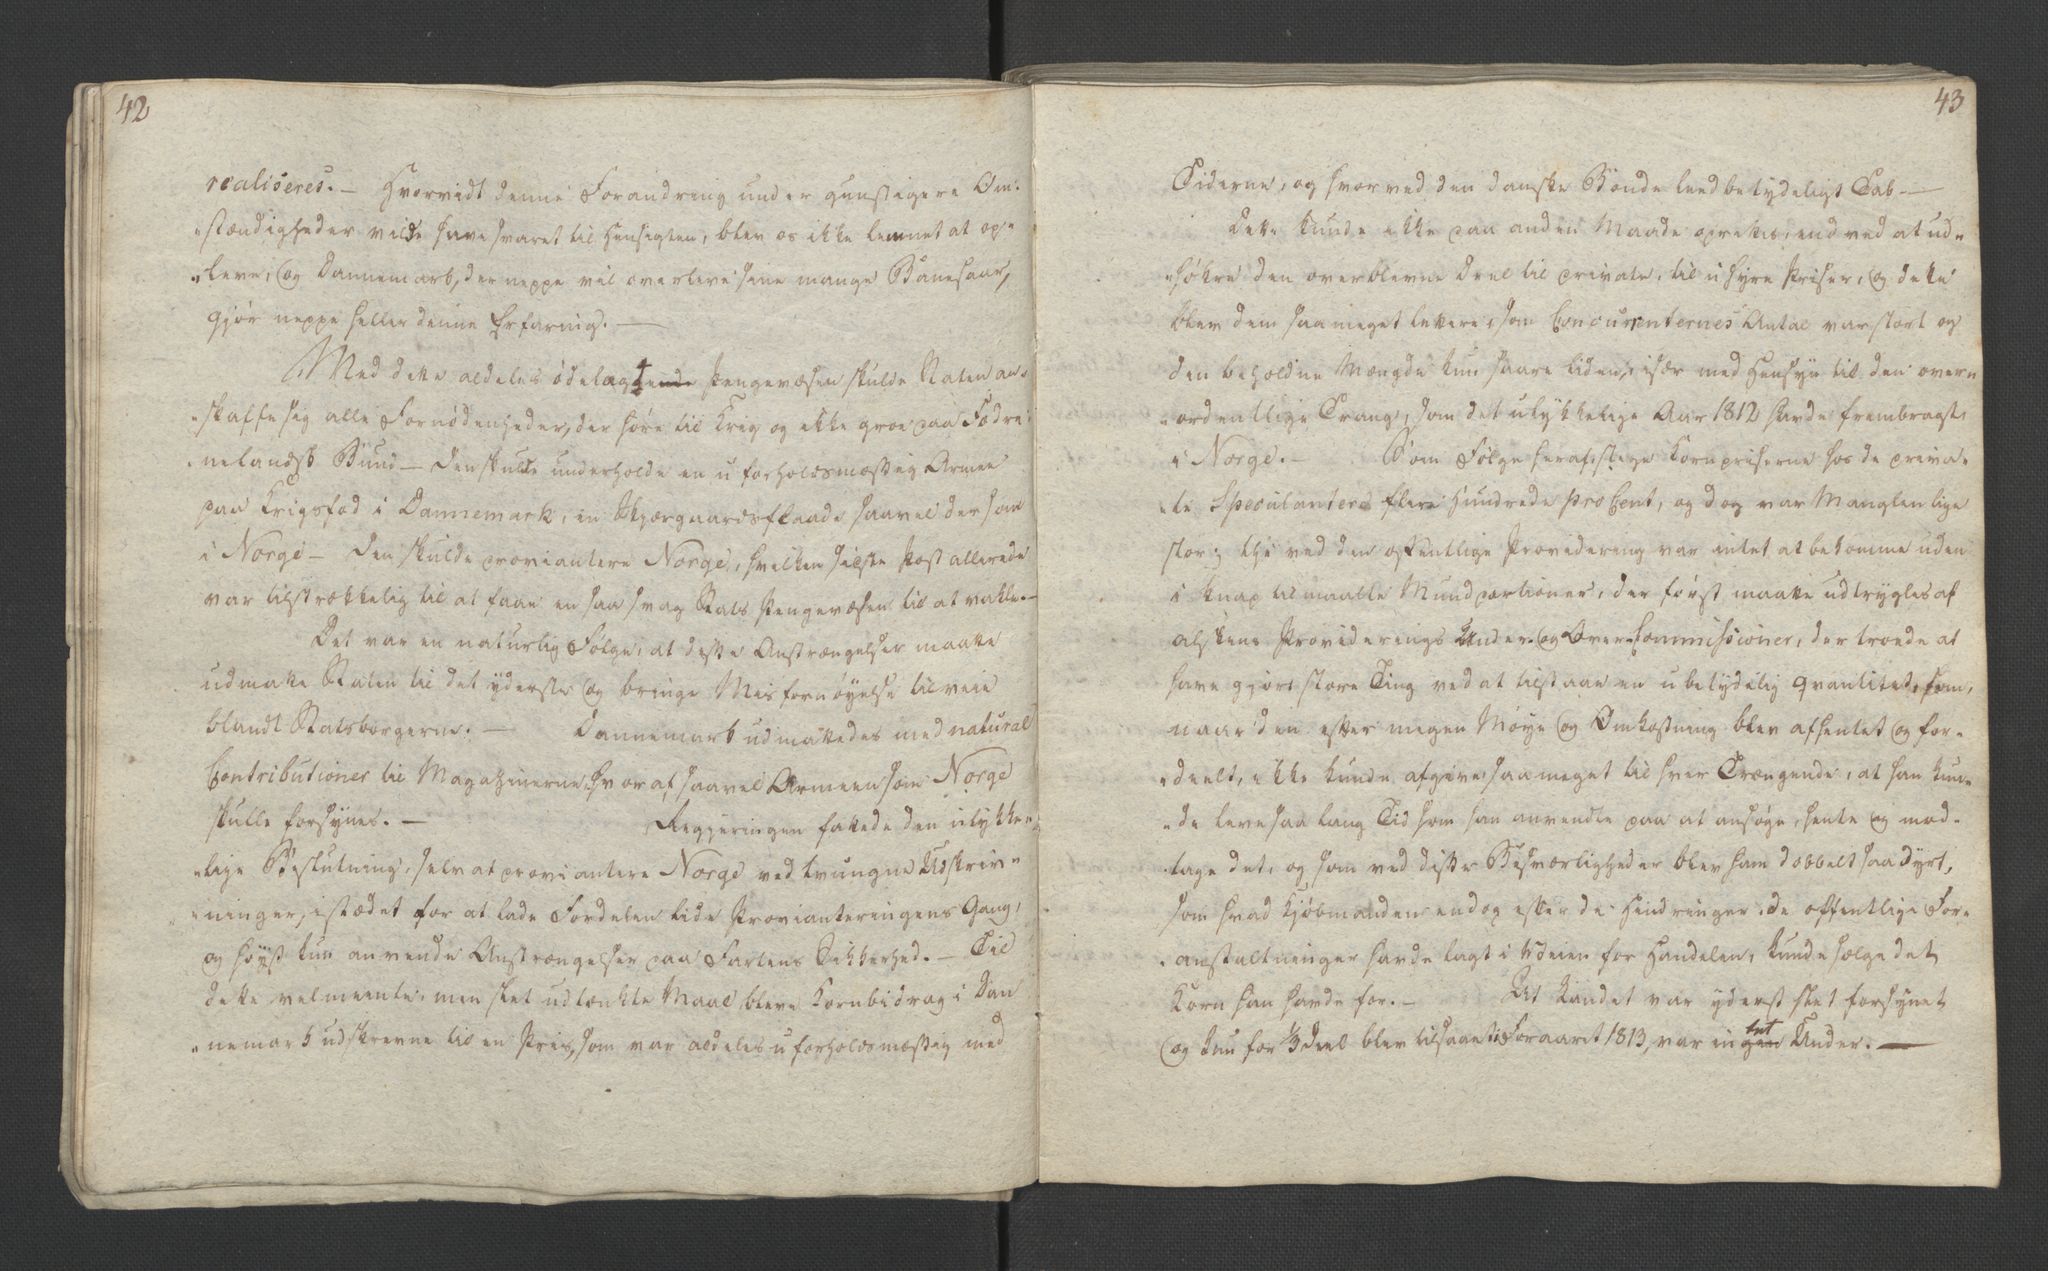 42
realiseres. — Hvorvidt denne Forandring under gunstigere Om-
"stændigheder vilde have svaret til Hensigten, blev os ikke levnet at op-
"leve, og Dannemark, der neppe vil overleve sine mange Banesaar,
gjør neppe heller denne Erfaring. —
Med dette aldeles ødelagte Pengevæsen skulde Staten an-
"skaffe sig alle Fornødenheder, der høre til Krig og ikke groe paa Fødre-
"nelandets Bund — Den skulde underholde en uforholdsmæssig Armee
paa Krigsfod i Dannemark, en Skjærgaardsflaade saavel der som
i Norge — Den skulde proviantere Norge, hvilken sidste Post allerede
var tilstrækkelig til at faae en saa svag Stats Pengevæsen til at vakle. —
Det var en naturlig Følge, at disse Anstrængelser maatte
udmatte Staten til det yderste og bringe Misfornøyelse tilveie
blandt Statsborgerne. — Dannemark udmattedes med natural
Contributioner til Magazinerne, hvoraf saavel Armeen som Norge
skulle forsynes. — Regjeringen fattede den ulykke-
"lige Beslutning, selv at proviantere Norge ved tvungne Udskriv-
"ninger, istædet for at lade Fordelen lede Provianteringens Gang,
og høyst kun anvende Anstrængelser paa Fartens Sikkerhed. — Til
dette velmeente, men slet udtænkte Maal bleve Kornbidrag i Dan
"nemark udskrevne til en Priis, som var aldeles uforholdsmæssig med
43
Tiderne, og hvorved den danske Bonde leed betydeligt Tab —
Dette kunde ikke paa anden Maade oprettes, end ved at ud-
"høkre den overblevne Deel til private, til uhyre Priser, og dette
blev dem saameget lettere, som Concurrenternes Antal var stort og
den beholdne Mængde kun saare liden, især med Hensyn til den over-
"ordentlige Trang, som det ulykkelige Aar 1812 havde frembragt
i Norge. — Som Følge heraf stege Kornpriserne hos de priva-
"te Speculanter flere Hundrede pro Cent, og dog var Manglen lige
stor; thi ved den offentlige Providering var intet at bekomme uden
i knap tilmaalte Mundportioner, der først maatte udtrygles af
alskens Providerings Under- og Over-Commissioner, der troede at
have gjort store Ting ved at tilstaae en ubetydelig Qvantitet, som,
naar den efter megen Møye og Omkostning blev afhentet og for-
"deelt, ikke kunde afgive saameget til hver Trængende, at han kun-
"de leve saa lang Tid som han anvendte paa at ansøge, hente og mod-
"tage det, og som ved disse Besværligheder blev ham dobbelt saa dyrt,
som hvad Kjøbmanden endog efter de Hindringer, de offentlige For-
"anstaltninger havde lagt i Veien for Handelen, kunde sælge det
Korn han havde for. — At Landet var yderst slet forsynet
og kun for 1/3 Deel blev tilsaaet i Foraaret 1813, var intet Under. —